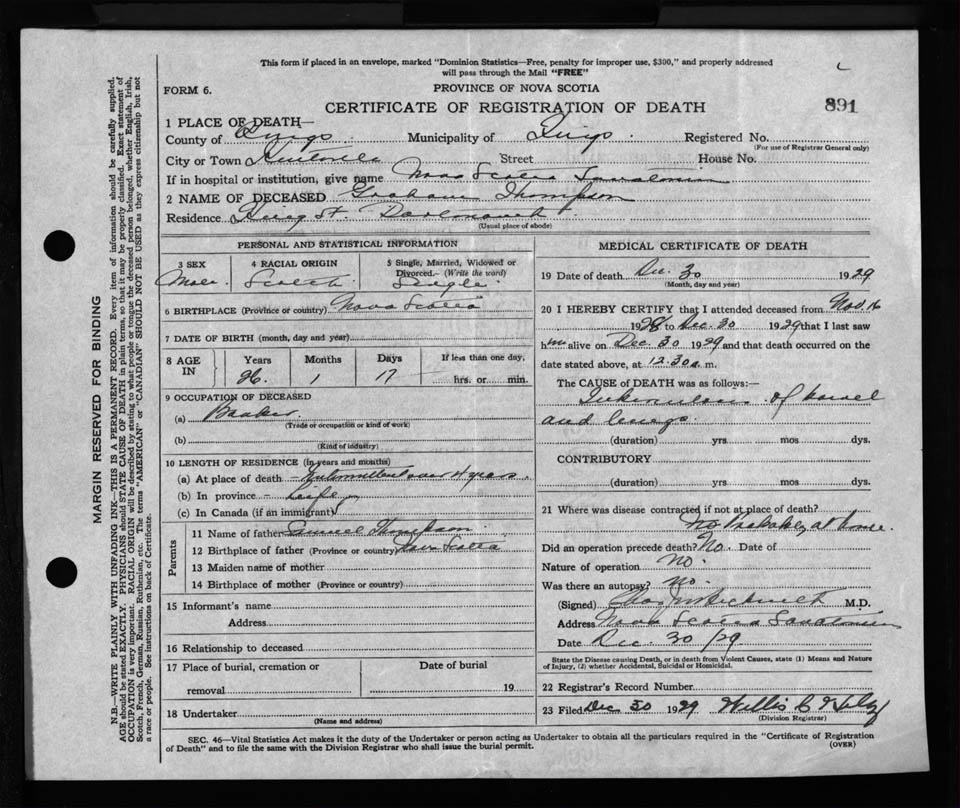 This form if placed in an envelope, marked "Dominion Statistics—Free, penalty for improper use, $300," and properly addressed
will pass through the Mail "FREE"
FORM 6.
PROVINCE OF NOVA SCOTIA
CERTIFICATE OF REGISTRATION OF DEATH
891
1 PLACE OF DEATH—
County of Kings Municipality of Kings. Registered No.
(For use of Registrar General only)
City or Town Kentville Street House No.
If in hospital or institution, give name Nova Scotia Sanatorium
2 NAME OF DECEASED Graham Thompson
Residence King St. Dartmouth
(Usual place of abode)
PERSONAL AND STATISTICAL INFORMATION
3 SEX 4 RACIAL ORIGIN 5 Single, Married, Widowed or
Divorced.— (Write the word)
Male. Scotch. Single.
6 BIRTHPLACE (Province or country) Nova Scotia
7 DATE OF BIRTH (month, day and year)
8 AGE IN Years Months Days If less than one day,
26. 1 17 hrs. or min.
9 OCCUPATION OF DECEASED
(a)
(Trade or occupation or kind of work)
(b)
(Kind of industry)
10 LENGTH OF RESIDENCE (in years and months)
(a) At place of death — over 4 years.
(b) In province — Life
(c) In Canada (if an immigrant)
Parents
11 Name of father Thompson
12 Birthplace of father (Province or country) Nova Scotia
13 Maiden name of mother
14 Birthplace of mother (Province or country)
15 Informant's name
Address
16 Relationship to deceased
17 Place of burial, cremation or Date of burial
removal 19
18 Undertaker
(Name and address)
MEDICAL CERTIFICATE OF DEATH
19 Date of death Dec. 30 1929
(Month, day and year)
20 I HEREBY CERTIFY that I attended deceased from Nov. 16
1928 to Dec. 30 1929 that I last saw
him alive on Dec. 30 1929 and that death occurred on the
date stated above, at 12.30 a. m.
The CAUSE of DEATH was as follows:—
Tuberculosis of bowel
and lungs.
(duration) yrs mos dys.
CONTRIBUTORY
(duration) yrs. mos. dys.
21 Where was disease contracted if not at place of death?
No Probably, at home.
Did an operation precede death? No Date of
Nature of operation no.
Was there an autopsy? no.
(Signed) M.D.
Address Nova Scotia Sanatorium
Date Dec. 30/29
State the Disease causing Death, or in death from Violent Causes, state (1) Means and Nature
of Injury, (2) whether Accidental, Suicidal or Homicidal.
22 Registrar's Record Number
23 Filed Dec 30 1929 Willis C
(Division Registrar)
SEC. 46—Vital Statistics Act makes it the duty of the Undertaker or person acting as Undertaker to obtain all the particulars required in the "Certificate of Registration
of Death" and to file the same with the Division Registrar who shall issue the burial permit.
(OVER)
MARGIN RESERVED FOR BINDING
N.B.—WRITE PLAINLY WITH UNFADING INK—THIS IS A PERMANENT RECORD. Every item of information should be carefully supplied.
AGE should be stated EXACTLY. PHYSICIANS should STATE CAUSE OF DEATH in plain terms, so that it may be properly classified. Exact statement of
OCCUPATION is very important. RACIAL ORIGIN will be described by stating to what people or tongue the deceased person belonged, whether English, Irish,
Scotch, French, German, Russian, Ruthenian, etc. The terms "AMERICAN" or "CANADIAN" SHOULD NOT BE USED as they express citizenship but not
a race or people. See instructions on back of Certificate.